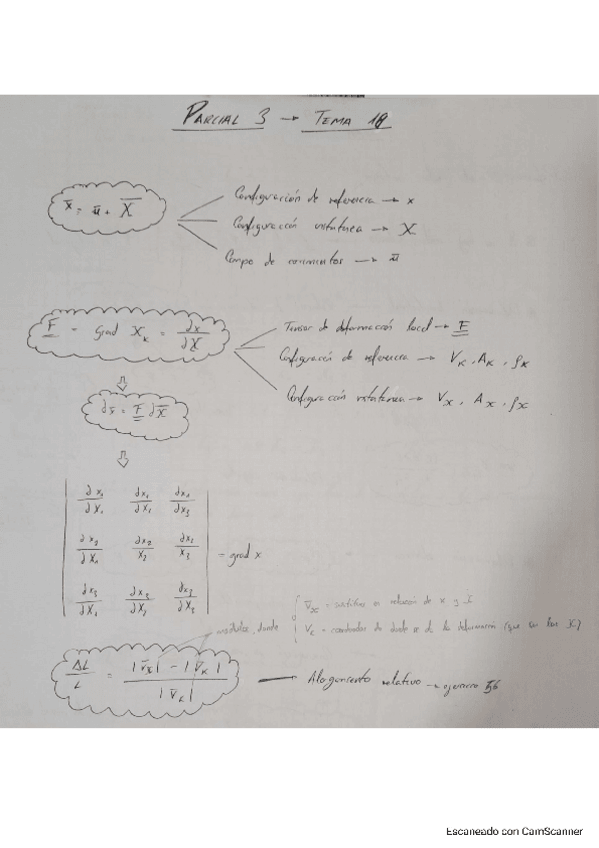 PARCIAL 3 → TEMA 18
x̄ = ū + X̄
Configuración de referencia → x
Configuración instatánea → X
Campo de → ū
F = grad X_K = ∂x/∂X
Tensor de deformación local → F
Configuración de referencia → V_K, A_K, ρ_K
Configuración instatánea → V_X, A_X, ρ_X
∂x̄ = F ∂X̄
∂x₁/∂X₁ ∂x₁/∂X₂ ∂x₁/∂x₃
∂x₂/∂X₁ ∂x₂/X₂ ∂x₂/x₃
∂x₃/∂X₁ ∂x₃/∂X₂ ∂x₃/∂X₃
= grad x
módulos, donde
V̄_X = en relación de x y X
V_K = coordenadas de donde se da la deformación (que en las X)
ΔL/L = (|V̄_X| − |V̄_K|)/|V̄_K|
Alargamiento relativo → ejercicio
Escaneado con CamScanner